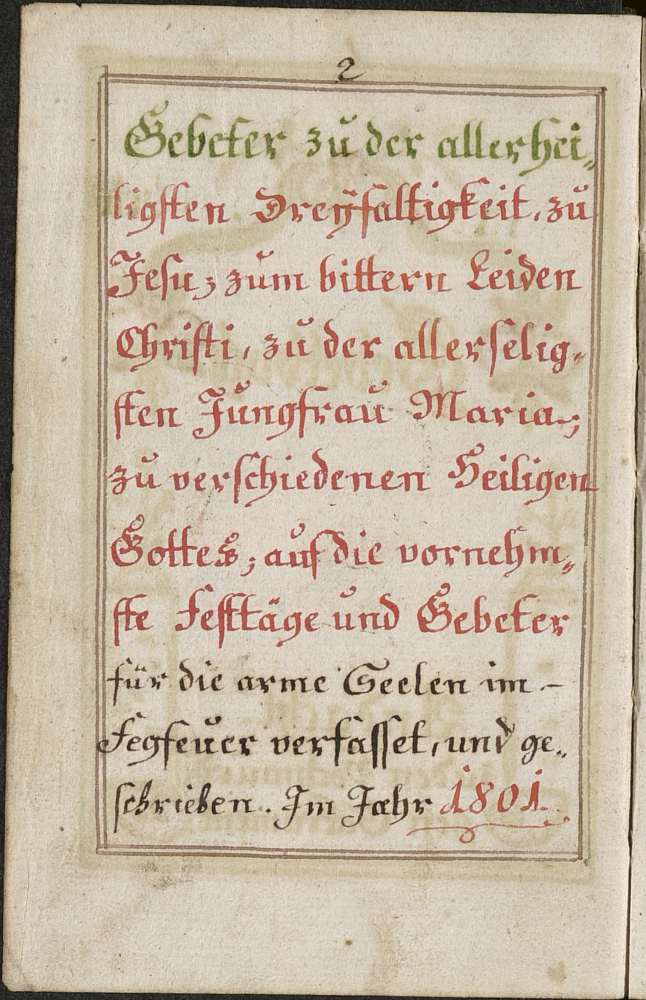 2
Gebeter zu der allerhei„
ligsten Dreyfaltigkeit, zu
Jesu; zum bittern Leiden
Christi, zu der allerselig„
sten Jungfrau Maria;
zu verschiedenen Heiligen
Gottes; auf die vornehm„
ste Festtäge und Gebeter
für die arme Seelen im –
Fegfeuer verfasset, und ge„
schrieben. Im Jahr 1801.